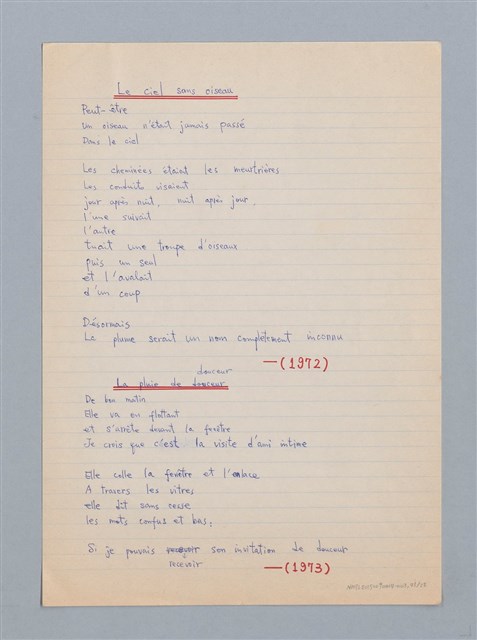 Le ciel sans oiseau
Peut-être
un oiseau n'était jamais passé
Dans le ciel
Les cheminées étaint les meurtrières
Les conduits visaient
jour après nuit, nuit après jour,
l'une suivait
l'autre
tuait une troupe d'oiseaux
puis un seul
et l'avalait
d'un coup
Désormais
La plume serait un nom complètement inconnu
—(1972)
douceur
La pluie de douceur
De bon matin
Elle va en flottant
et s'arrête devant la fenêtre
Je crois que c'est la visite d'ami intime
Elle colle la fenêtre et l'enlace
A travers les vitres
elle dit sans cesse
les mots confus et bas:
Si je pouvais recevoir son invitation de douceur
recevoir
—(1973)